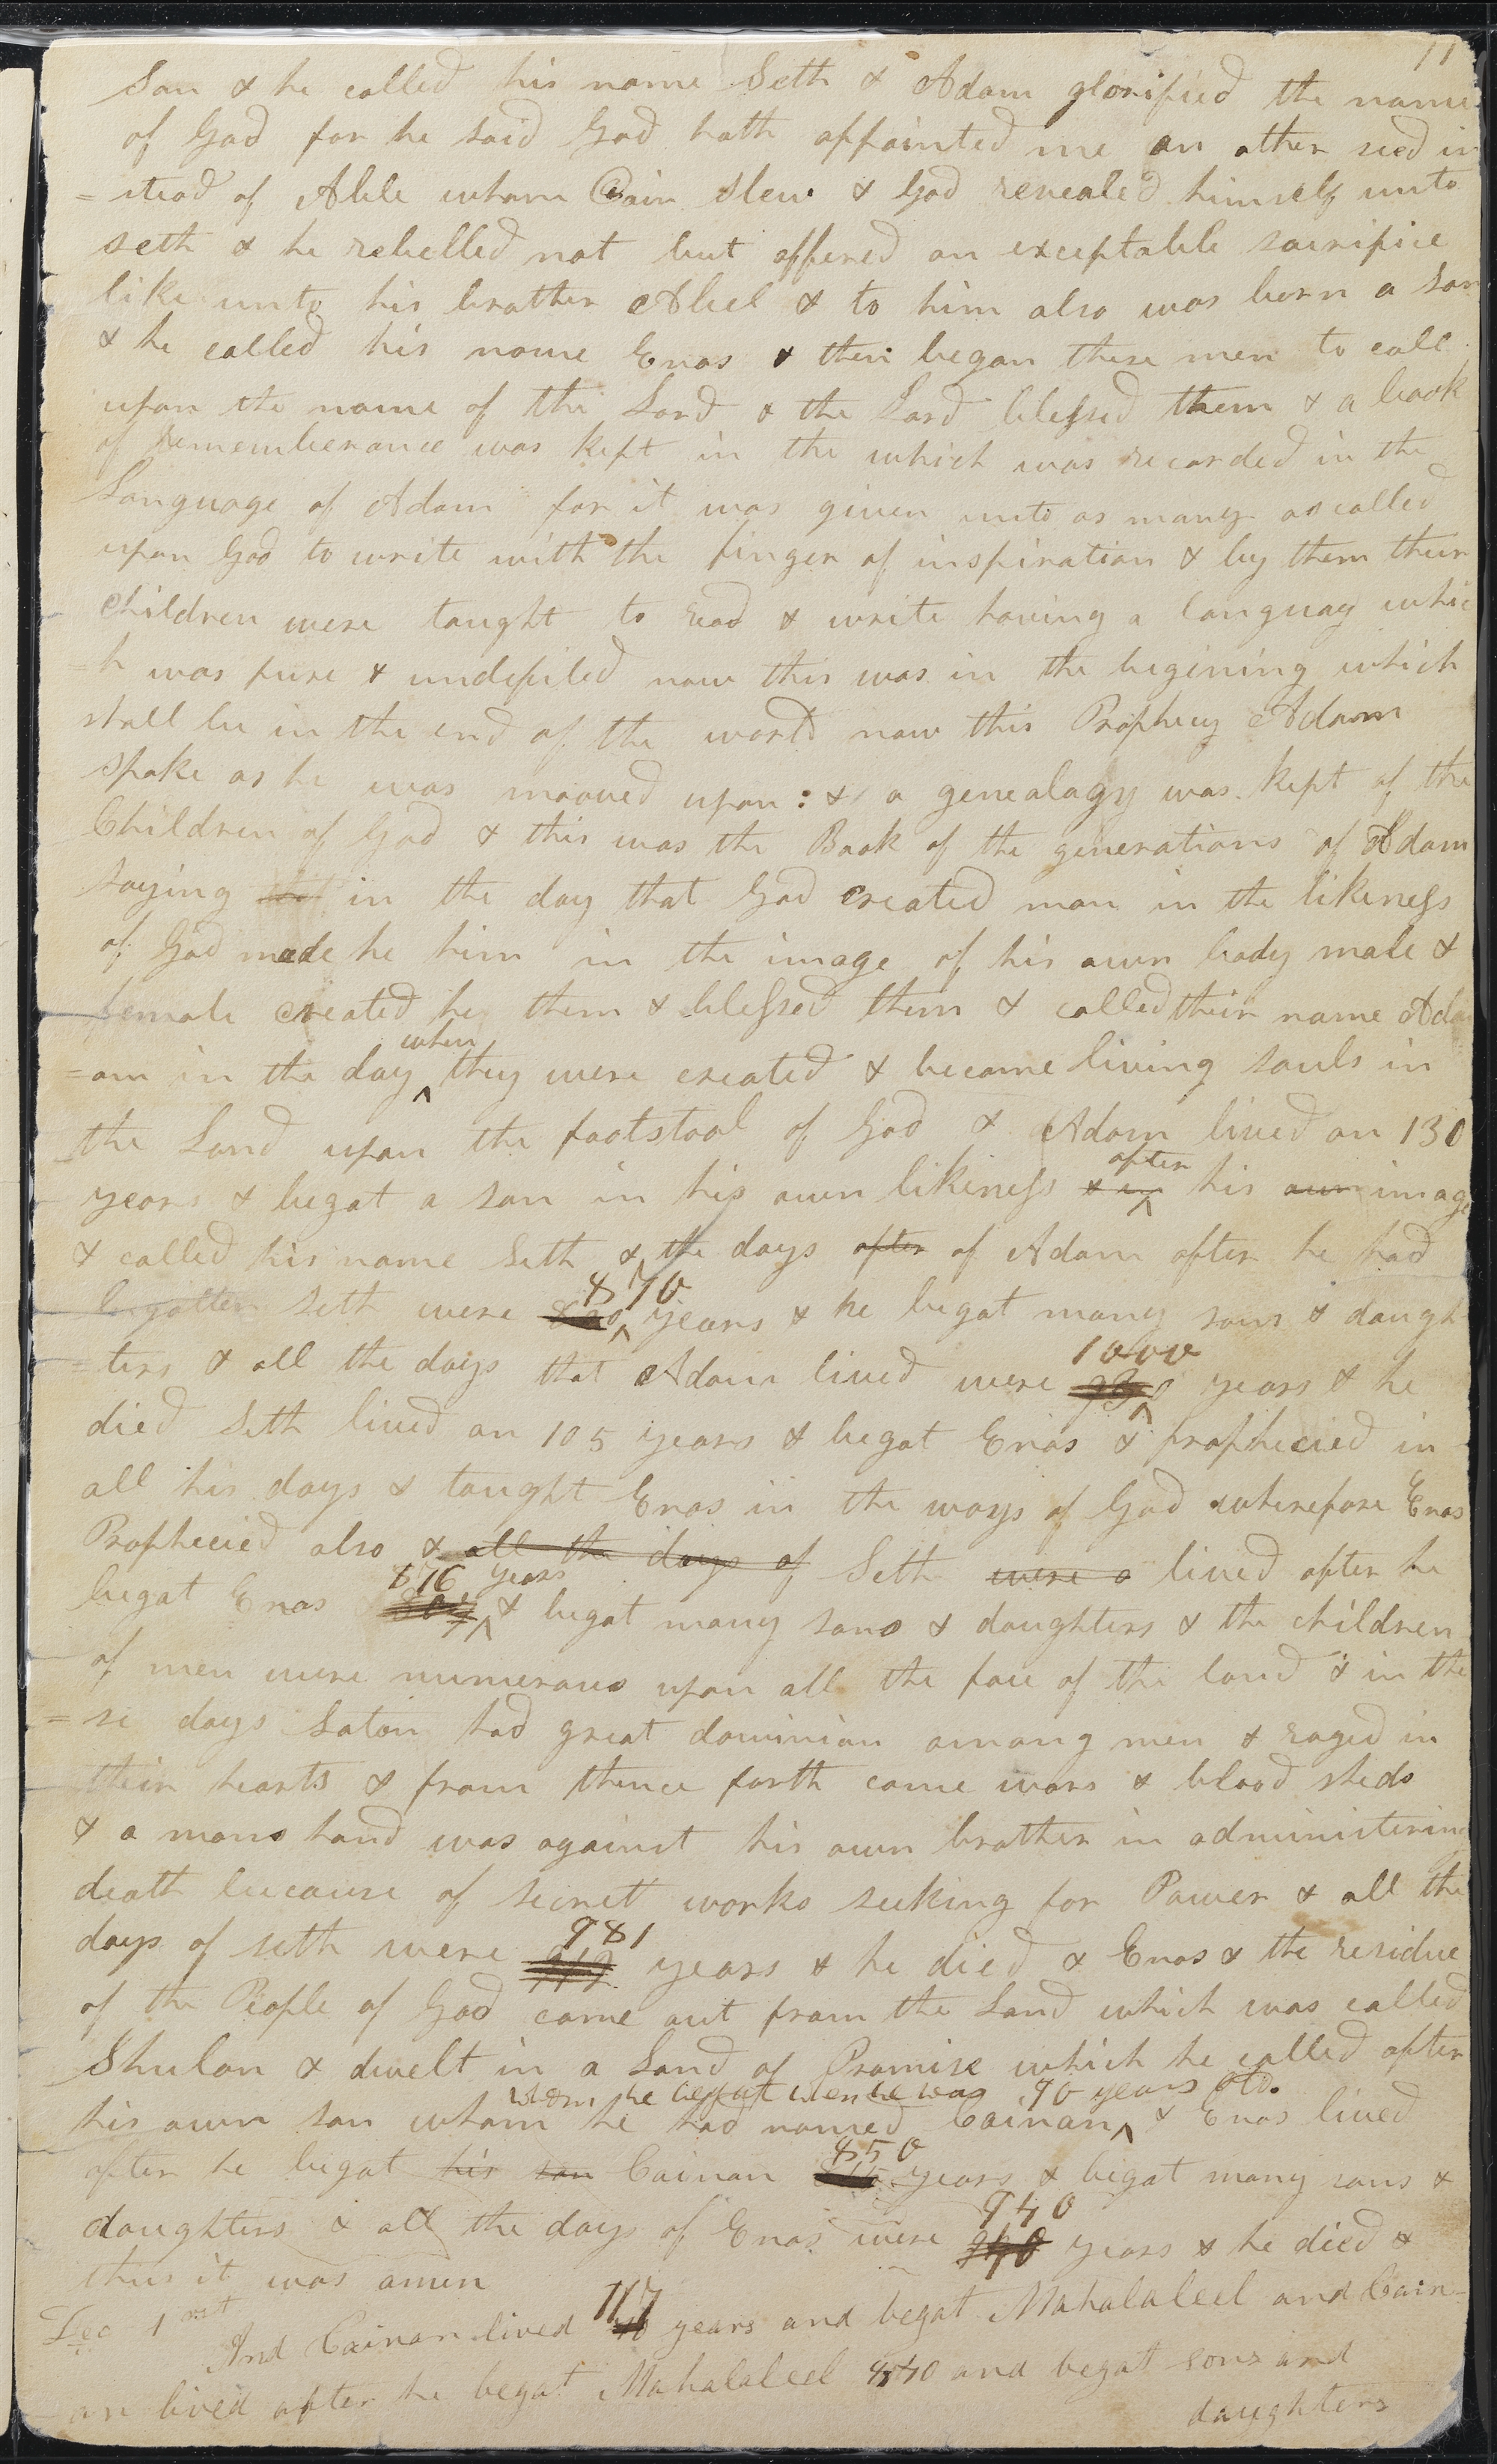 11
Son & he called his name Seth & Adam glorified the name
of God for he said God hath appointed me an other seed in
=stead of Able whom Cain slew & God revealed himself unto
seth & he rebelled not but offered an exceptable sacrifice
like unto his brother Abel & to him also was born a son
& he called his name Enos & then began these men to call
upon the name of the Lord & the Lord blessed them & a book
of rememberance was kept in the which was recorded in the
Language of Adam for it was given unto as many as called
upon God to write with the finger of inspiration & by them their
children were taught to read & write having a languag whic
=h was pure & undefiled now this was in the begining which
shall be in the end of the world now this Prophecy Adam
spake as he was mooved upon: & a genealagy was kept of the
Children of God & this was the Book of the generations of Adam
saying in the day that God created man in the likeness
of God made he him in the image of his own body male &
female created he them & blessed them & called their name Ada
when
=am in the day ^ they were created & became living souls in
the Land upon the footstool of God & Adam lived an 130
after
years & begat a son in his own likeness & in ^ his own image
& called his name Seth & the days after of Adam after he had
870
begotten Seth were ^ years & he begat many sons & daugh
1000
=ters & all the days that Adam lived were 930 ^ years & he
died Seth lived an 105 years & begat Enos & prophecied in
all his days & taught Enos in the ways of God wherefore Enos
Prophecied also & all the days of Seth were a lived after he
876 years
begat Enos 807 ^ & begat many sons & daughters & the children
of men were numerous upon all the face of the land & in the
=se days Satan had great dominion among men & raged in
their hearts & from thence forth came wars & blood sheds
& a mans hand was against his own brother in administering
death because of secret works seeking for Power & all the
981
days of seth were 912 years & he died & Enos & the residue
of the People of God came out from the Land which was called
Shulon & dwelt in a Land of Promise which he called after
whom he begat when he was 90 years old.
his own son whom he had named Cainan ^ & Enos lived
850
after he begat his son Cainan 815 years & begat many sons &
940
daughters & all the days of Enos were years & he died &
thus it was amen
Dec 1st
117
And Cainan lived 70 years and begat Mahalaleel and Cain-
an lived after he begat Mahalaleel 840 and begat sons and
daughters